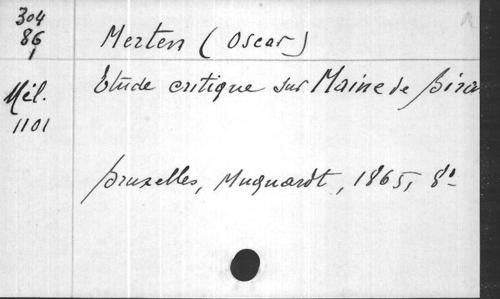 304
86
1
Merten (Oscar)
Etude critique sur Maine de Biran
Mél.
1101
Bruxelles, Muquardt, 1865, 8°